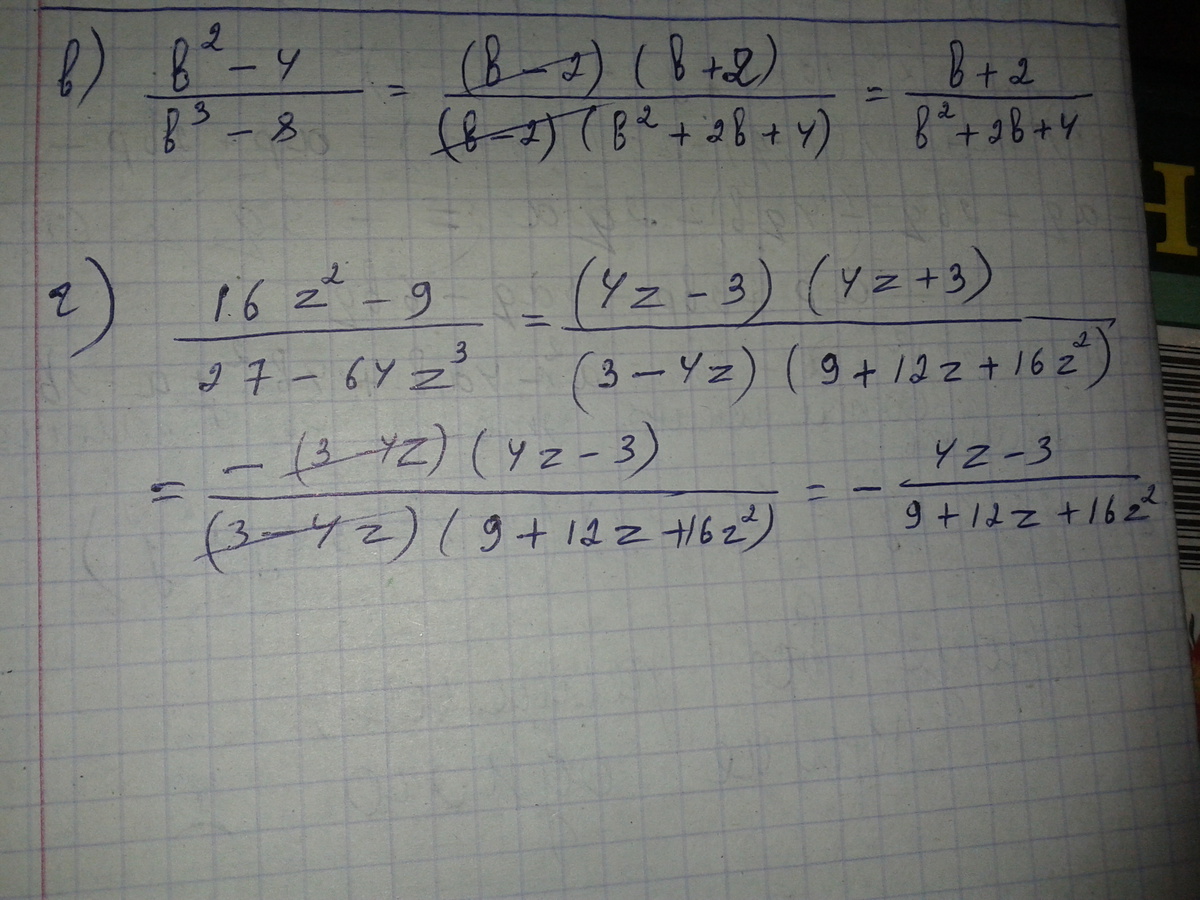 в) (b² - 4)/(b³ - 8) = ((b - 2)(b + 2))/((b - 2)(b² + 2b + 4)) = (b + 2)/(b² + 2b + 4)
г) (16z² - 9)/(27 - 64z³) = ((4z - 3)(4z + 3))/((3 - 4z)(9 + 12z + 16z²))
= (-(3 - 4z)(4z - 3))/((3 - 4z)(9 + 12z + 16z²)) = - (4z - 3)/(9 + 12z + 16z²)
Н